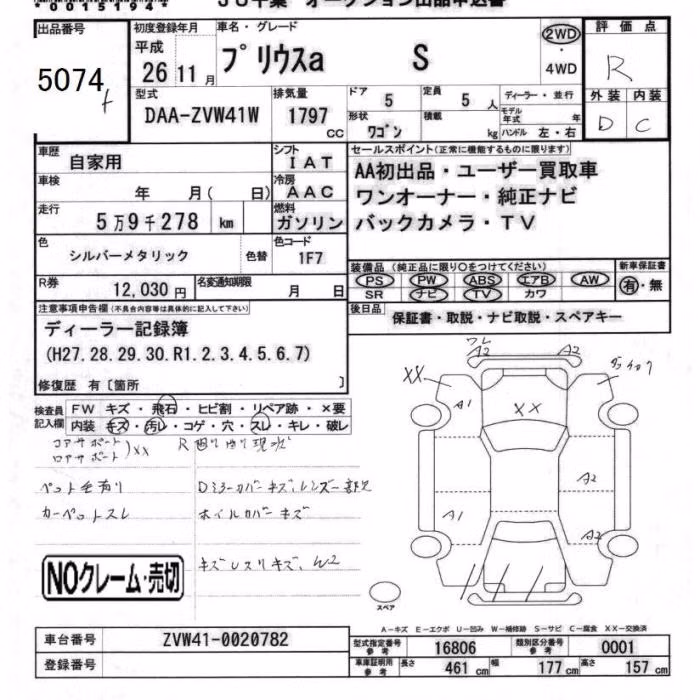 *00151944*
JU千葉 オークション出品申込書
出品番号 初度登録年月 車名・グレード 評価点
5074
平成 26 11月 プリウスa S 2WD・4WD R
型式 排気量 ドア 5 定員 5人 ディーラー・並行 外装 内装
DAA-ZVW41W 1797 cc 形状 ワゴン 積載 kg モデル年式 年 ハンドル 左・右 D C
車歴 自家用 シフト IAT セールスポイント(正常に機能するものに限ります)
車検 年 月( 日) 冷房 AAC AA初出品・ユーザー買取車
ワンオーナー・純正ナビ
走行 5万9千278 km 燃料 ガソリン バックカメラ・TV
色 シルバーメタリック 色替 色コード 1F7
装備品(純正品に限り○をつけてください) 新車保証書
PS PW ABS エアB AW 有・無
SR ナビ TV カワ
R券 12,030円 名変通知期限 月 日
後日品 保証書・取説・ナビ取説・スペアキー
注意事項申告欄(不具合内容等は具体的に記入して下さい)
ディーラー記録簿
(H27.28.29.30.R1.2.3.4.5.6.7)
修復歴 有〔箇所 〕
検査員記入欄 FW キズ・飛石・ヒビ割・リペア跡・×要
内装 キズ・汚レ・コゲ・穴・スレ・キレ・破レ
コアサポート
ロアサポート )XX R
ペット毛有り Dミラーカバーキズ、レンズ
カーペットスレ ホイルカバーキズ
キズ W2
NOクレーム・売切
A2 A2
XX
A1 XX
A2
A1 A2
スペア
A−キズ E−エクボ U−凹み W−補修跡 S−サビ C−腐食 XX−交換済
車台番号 ZVW41-0020782 型式指定番号参考 16806 類別区分番号参考 0001
登録番号 車庫証明用参考 長さ 461cm 幅 177cm 高さ 157cm